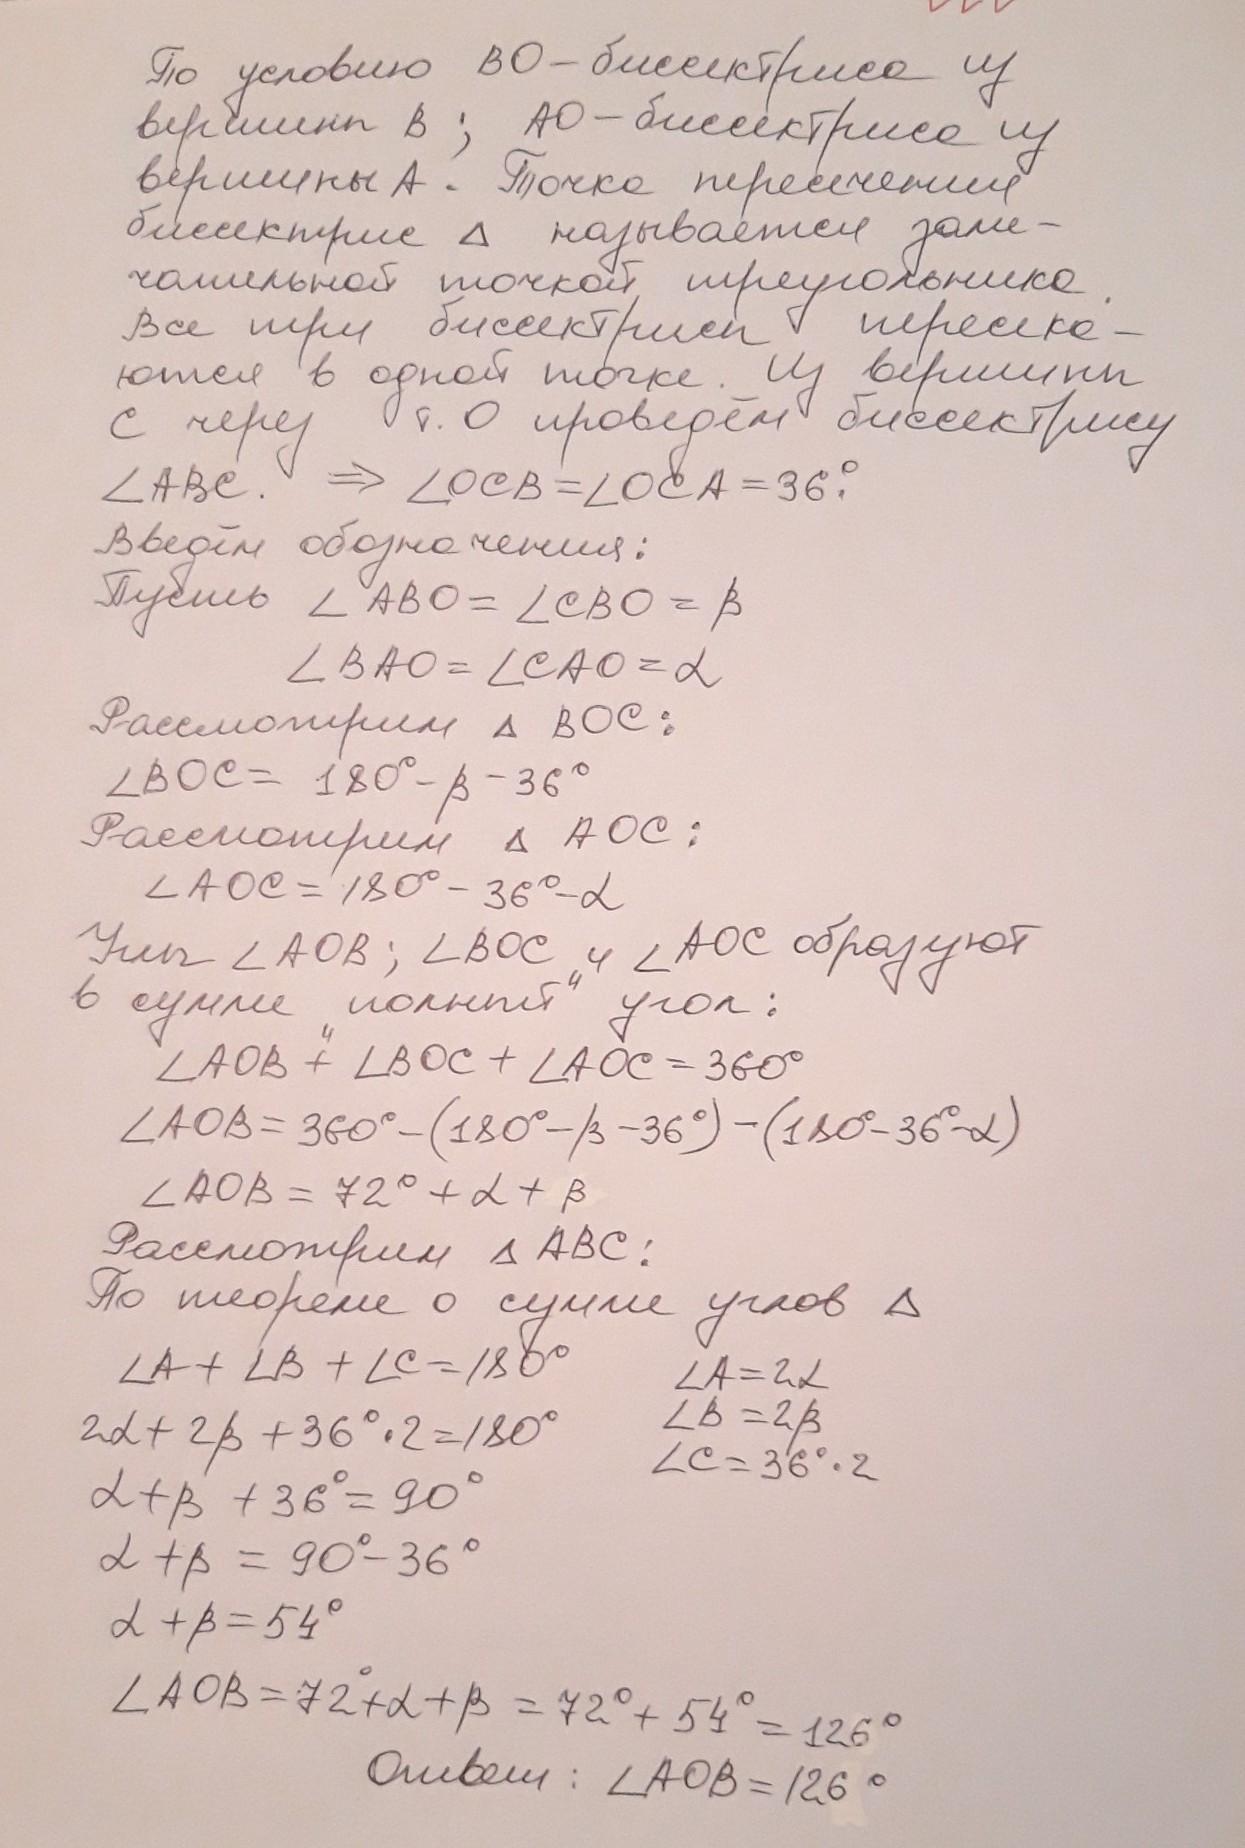 По условию BO – биссектриса из
вершины B ; AO – биссектриса из
вершины A . Точка пересечения
биссектрис Δ называется заме-
чательной точкой треугольника .
Все три биссектрисы пересека-
ются в одной точке . Из вершины
C через т. O проведём биссектрису
∠ABC. ⇒ ∠OCB = ∠OCA = 36°.
Введём обозначения :
Пусть ∠ABO = ∠CBO = β
∠BAO = ∠CAO = α
Рассмотрим Δ BOC :
∠BOC = 180° – β – 36°
Рассмотрим Δ AOC :
∠AOC = 180° – 36° – α
Углы ∠AOB ; ∠BOC и ∠AOC образуют
в сумме „полный" угол :
∠AOB + ∠BOC + ∠AOC = 360°
∠AOB = 360° – (180° – β – 36°) – (180° – 36° – α)
∠AOB = 72° + α + β
Рассмотрим Δ ABC :
По теореме о сумме углов Δ
∠A + ∠B + ∠C = 180° ∠A = 2α
2α + 2β + 36° · 2 = 180° ∠B = 2β
∠C = 36° · 2
α + β + 36° = 90°
α + β = 90° – 36°
α + β = 54°
∠AOB = 72° + α + β = 72° + 54° = 126°
Ответ : ∠AOB = 126°